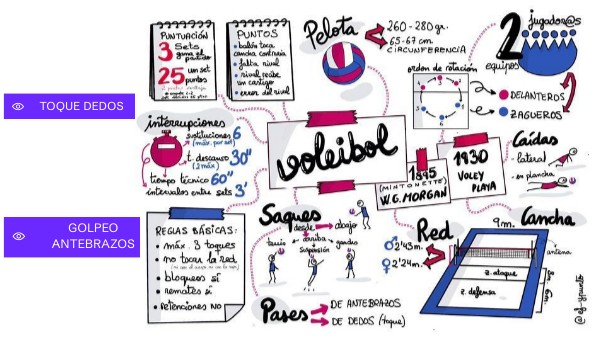 TOQUE DEDOS
GOLPEO
ANTEBRAZOS
PUNTUACIÓN
3 Sets
gana el
partido
25 un set
puntos
PUNTOS
• balón toca
cancha contraria
• falta rival
• rival recibe
un castigo
• error del rival
Pelota
260-280gr.
65-67cm
CIRCUNFERENCIA
2 jugador@s
equipos
orden de rotación
DELANTEROS
ZAGUEROS
interrupciones
sustituciones 6
(máx. por set)
t. descanso 30"
(2 máx)
tiempo técnico 60"
intervalos entre sets 3'
voleibol
1895
(MINTONETTE)
W.G. MORGAN
1930
VOLEY
PLAYA
Caídas
- lateral
- en plancha
REGLAS BÁSICAS:
• máx. 3 toques
• no tocar la red
• bloqueos sí
• remates sí
• retenciones NO
Saques
desde abajo
arriba
tenis
suspensión
gancho
Pases
DE ANTEBRAZOS
DE DEDOS (toque)
Red
♂ 2'43m.
♀ 2'24m.
Cancha
9m.
antena
z. ataque
z. defensa
3m.
6m.
@ef-ypunto